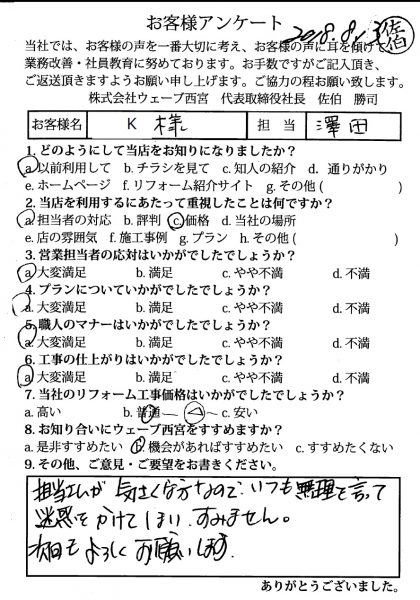 お客様アンケート 2018.8.13 佐伯
当社では、お客様の声を一番大切に考え、お客様の声に耳を傾け
業務改善・社員教育に努めております。お手数ですがご記入頂き、
ご返送頂きますようお願い申し上げます。ご協力の程お願い致します。
株式会社ウェーブ西宮 代表取締役社長 佐伯 勝司
お客様名 K 様 担当 澤田
1. どのようにして当店をお知りになりましたか?
a. 以前利用して b. チラシを見て c. 知人の紹介 d. 通りがかり
e. ホームページ f. リフォーム紹介サイト g. その他 ( )
2. 当店を利用するにあたって重視したことは何ですか?
a. 担当者の対応 b. 評判 c. 価格 d. 当社の場所
e. 店の雰囲気 f. 施工事例 g. プラン h. その他 ( )
3. 営業担当者の応対はいかがでしたでしょうか?
a. 大変満足 b. 満足 c. やや不満 d. 不満
4. プランについていかがでしたでしょうか?
a. 大変満足 b. 満足 c. やや不満 d. 不満
5. 職人のマナーはいかがでしたでしょうか?
a. 大変満足 b. 満足 c. やや不満 d. 不満
6. 工事の仕上がりはいかがでしたでしょうか?
a. 大変満足 b. 満足 c. やや不満 d. 不満
7. 当社のリフォーム工事価格はいかがでしたでしょうか?
a. 高い b. 普通 c. 安い
8. お知り合いにウェーブ西宮をすすめますか?
a. 是非すすめたい b. 機会があればすすめたい c. すすめたくない
9. その他、ご意見・ご要望をお書きください。
担当さんが 気さくな方なので、いつも無理を言って
迷惑をかけてしまい すみません。
次回も よろしく お願いします.
ありがとうございました。